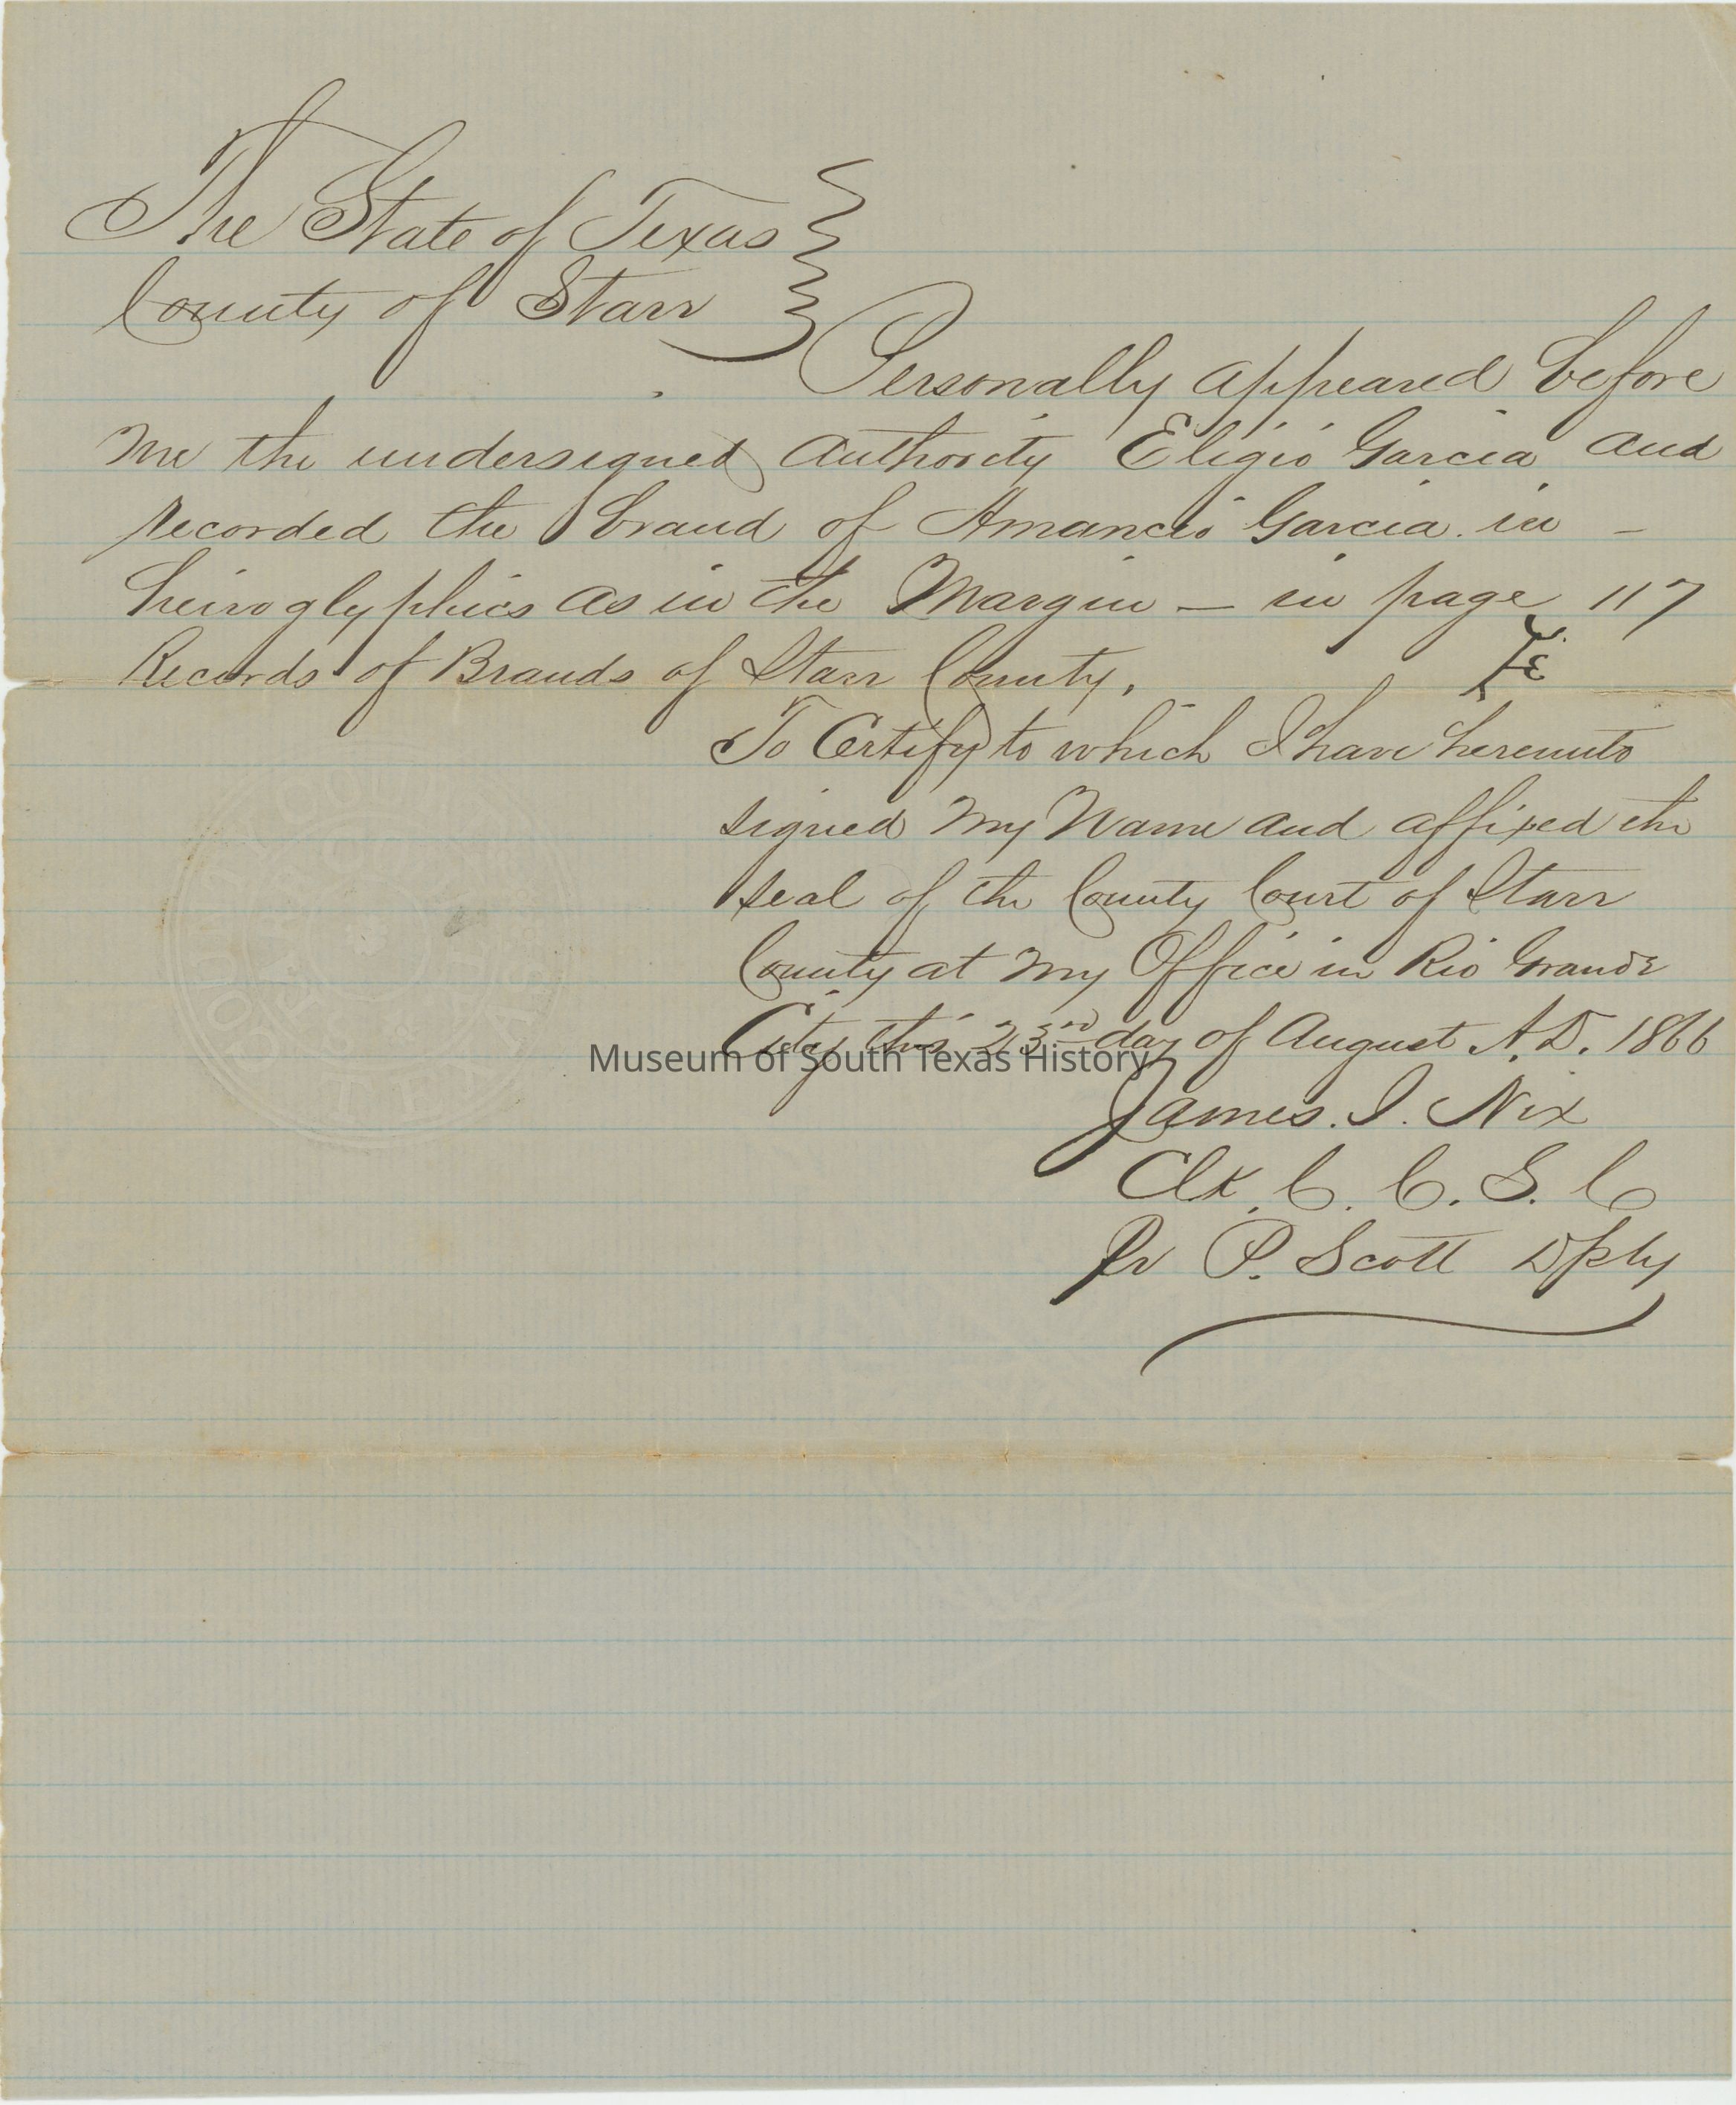 The State of Texas
County of Starr
Personally appeared before
me the undersigned Authority Eligio Garcia and
recorded the brand of Amancio Garcia. in –
heiroglyphics as in the Margin – in page 117
Records of Brands of Starr County,
To Certify to which I have hereunto
signed my Name and affixed the
seal of the County Court of Starr
County at my Office in Rio Grande
City this 23rd day of August A.D. 1866
Museum of South Texas History
James. I. Nix
Clk. C. C. S. C
Pr P. Scott Dpty